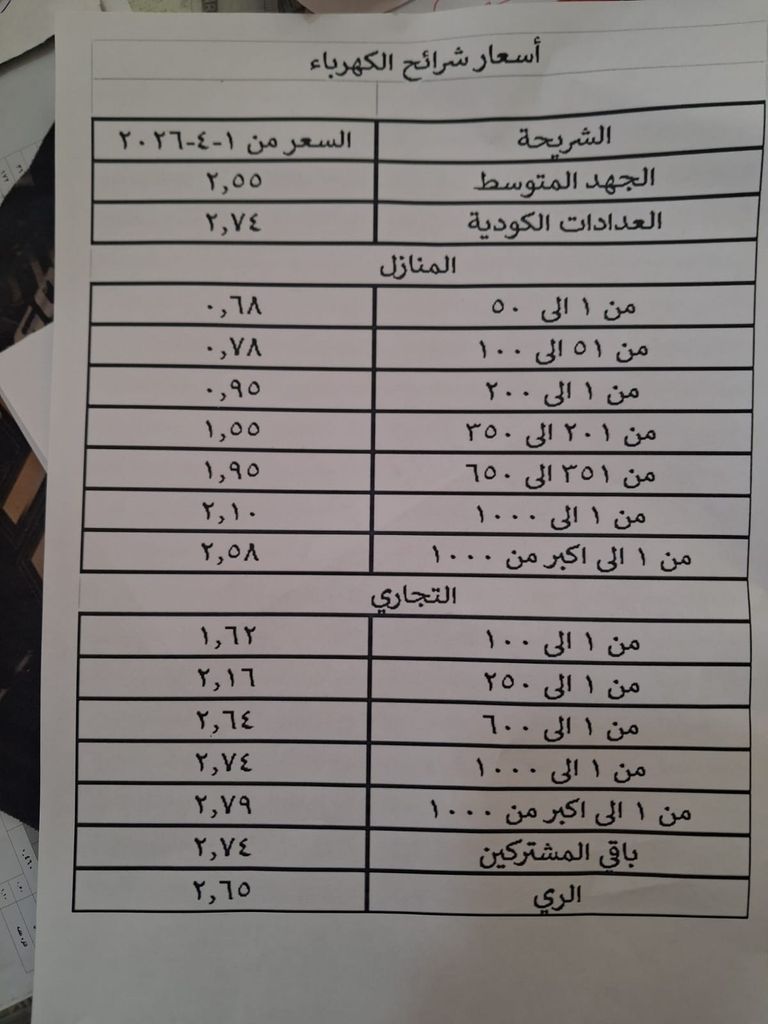 أسعار شرائح الكهرباء
الشريحة السعر من ١-٤-٢٠٢٦
الجهد المتوسط ٢,٥٥
العدادات الكودية ٢,٧٤
المنازل
من ١ الى ٥٠ ٠,٦٨
من ٥١ الى ١٠٠ ٠,٧٨
من ١ الى ٢٠٠ ٠,٩٥
من ٢٠١ الى ٣٥٠ ١,٥٥
من ٣٥١ الى ٦٥٠ ١,٩٥
من ١ الى ١٠٠٠ ٢,١٠
من ١ الى اكبر من ١٠٠٠ ٢,٥٨
التجاري
من ١ الى ١٠٠ ١,٦٢
من ١ الى ٢٥٠ ٢,١٦
من ١ الى ٦٠٠ ٢,٦٤
من ١ الى ١٠٠٠ ٢,٧٤
من ١ الى اكبر من ١٠٠٠ ٢,٧٩
باقي المشتركين ٢,٧٤
الري ٢,٦٥